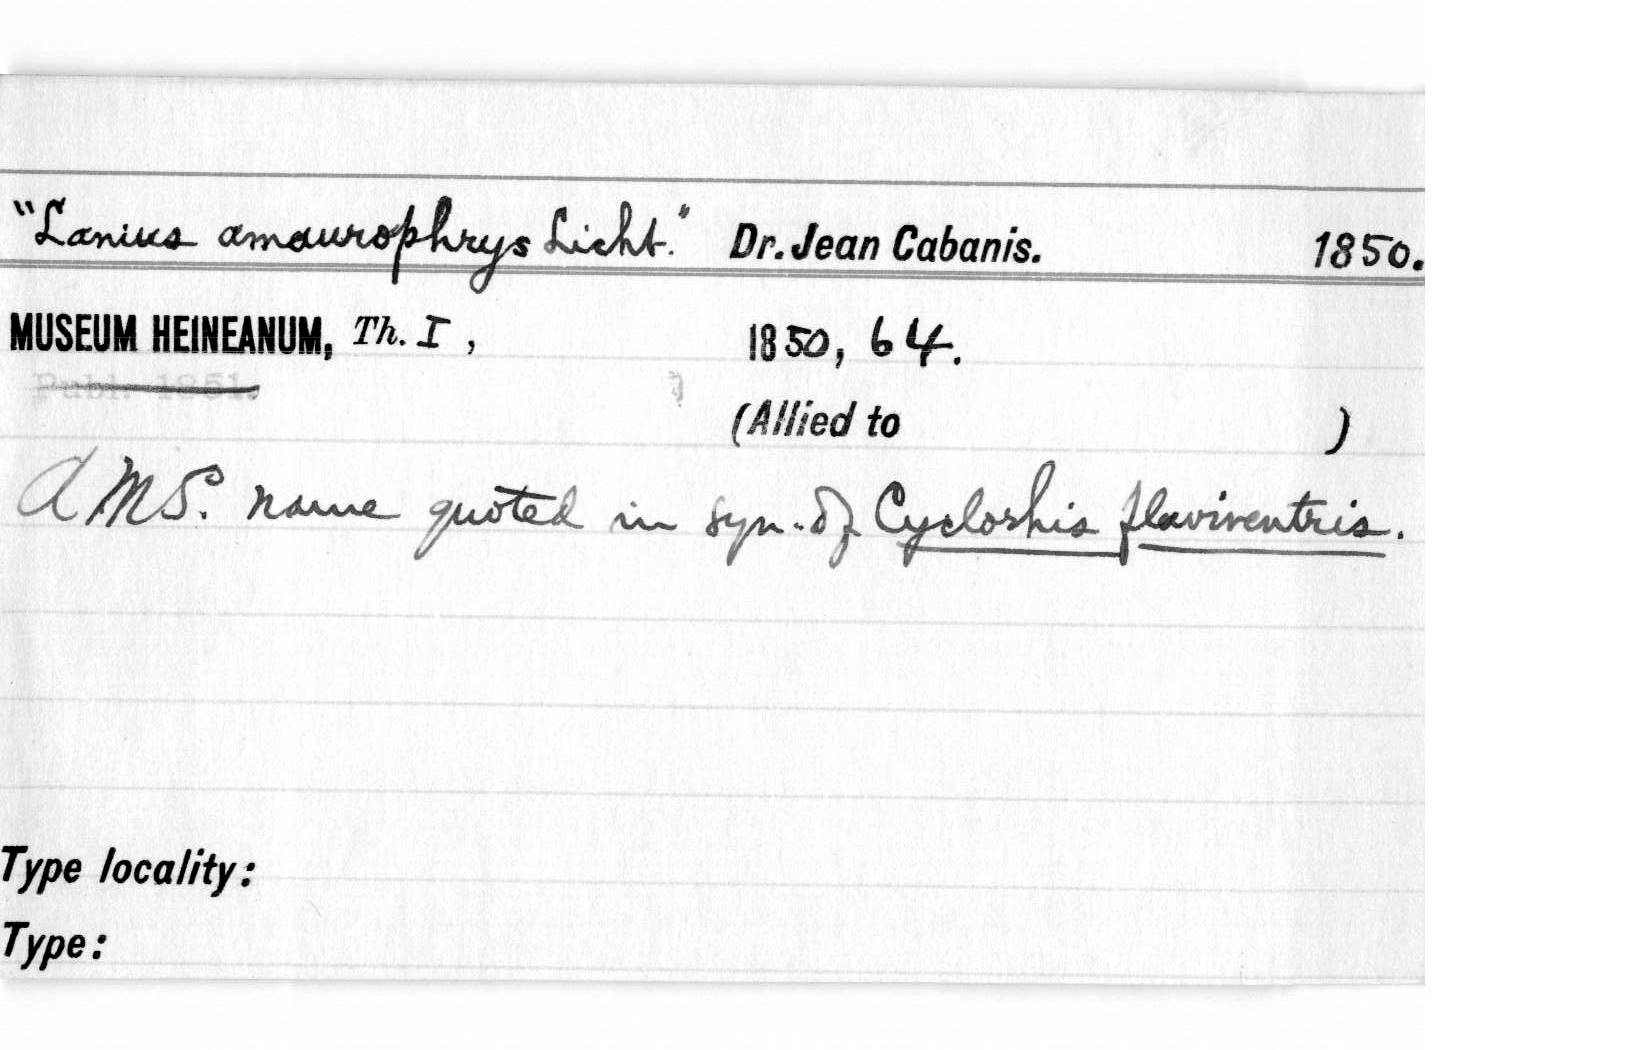 "Lanius amaurophrys Licht." Dr. Jean Cabanis. 1850.
MUSEUM HEINEANUM, Th. I, 1850, 64.
Publ. 1851.
(Allied to )
A MS. name quoted in syn. of Cyclorhis flaviventris.
Type locality:
Type: